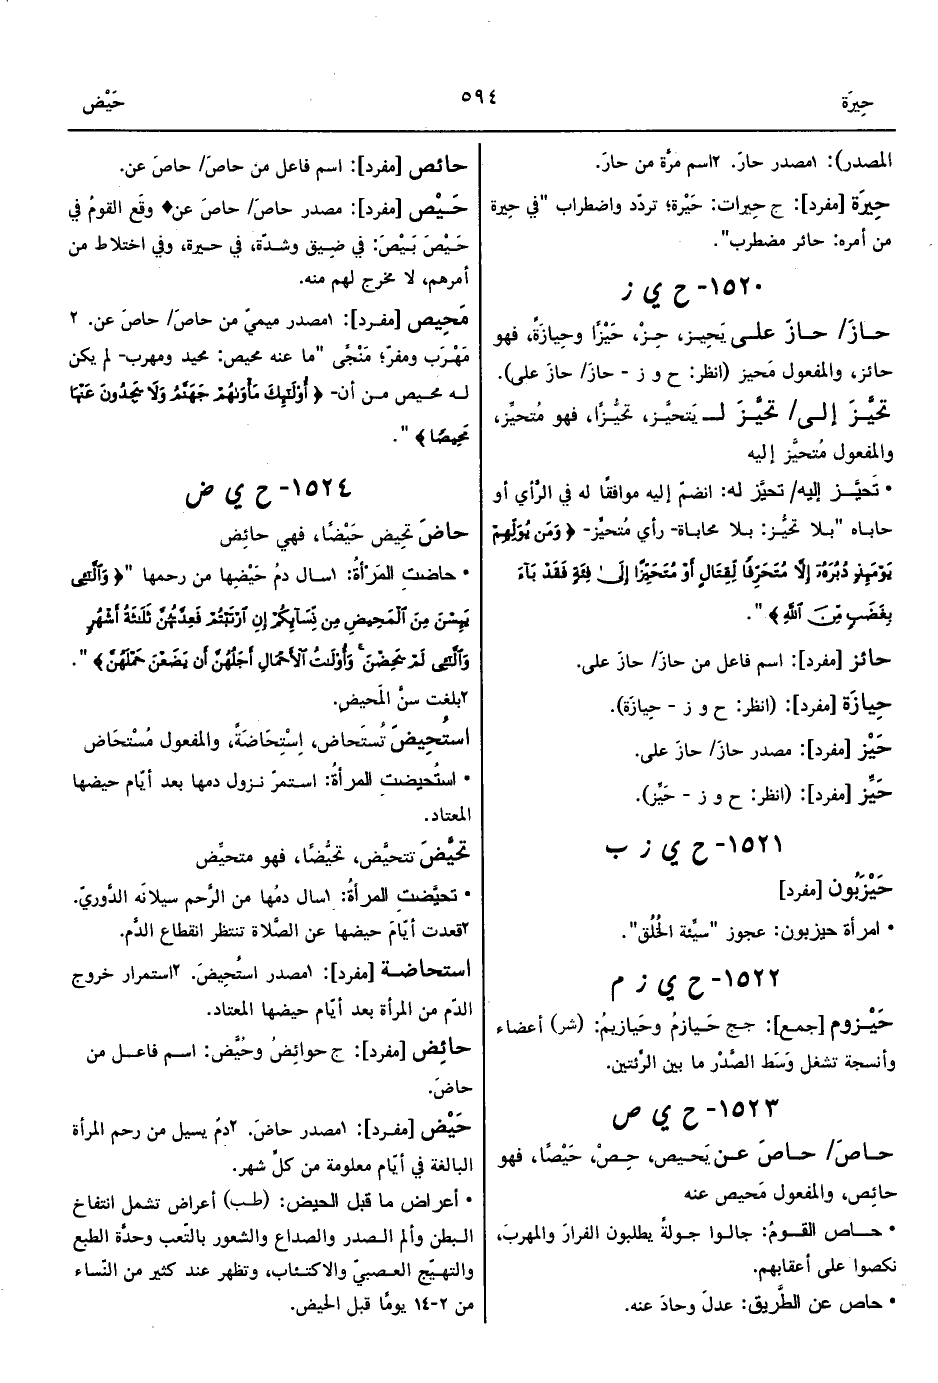 حِيرَة
٥٩٤
حَيْض
المصدر): ١مصدر حارَ. ٢اسم مرَّة من حارَ.
حِيرَة [مفرد]: ج حِيرات: حَيْرة؛ تردّد واضطراب "في حِيرة
من أمره: حائر مضطرب".
١٥٢٠- ح ي ز
حازَ/ حازَ على يَحِيز، حِزْ، حَيْزًا وحِيازَةً، فهو
حائز، والمفعول مَحيز (انظر: ح و ز - حازَ/ حازَ على).
تحيَّزَ إلى/ تحيَّزَ لـ يَتحيَّز، تحيُّزًا، فهو مُتحيِّز،
والمفعول مُتحيَّز إليه
• تَحيَّز إليه/ تحيَّز له: انضمّ إليه موافقًا له في الرَّأي أو
حاباه "بلا تحيُّز: بلا محاباة- رأي مُتحيِّز- ﴿ وَمَن يُوَلِّهِمْ
يَوْمَئِذٍ دُبُرَهُۥٓ إِلَّا مُتَحَرِّفًا لِّقِتَالٍ أَوْ مُتَحَيِّزًا إِلَىٰ فِئَةٍ فَقَدْ بَآءَ
بِغَضَبٍ مِّنَ ٱللَّهِ ﴾ ".
حائز [مفرد]: اسم فاعل من حازَ/ حازَ على.
حِيازَة [مفرد]: (انظر: ح و ز - حِيازَة).
حَيْز [مفرد]: مصدر حازَ/ حازَ على.
حَيِّز [مفرد]: (انظر: ح و ز - حَيِّز).
١٥٢١- ح ي ز ب
حَيْزَبُون [مفرد]
• امرأة حيزبون: عجوز "سيِّئة الخُلُق".
١٥٢٢- ح ي ز م
حَيْزوم [جمع]: جج حَيازمُ وحَيازيمُ: (شر) أعضاء
وأنسجة تشغل وَسَط الصَّدْر ما بين الرِّئتين.
١٥٢٣- ح ي ص
حاصَ/ حاصَ عن يَحيص، حِصْ، حَيْصًا، فهو
حائِص، والمفعول مَحيص عنه
• حاص القومُ: جالوا جولةً يطلبون الفرارَ والمهربَ،
نكصوا على أعقابهم.
• حاص عن الطَّريق: عدلَ وحادَ عنه.
حائص [مفرد]: اسم فاعل من حاصَ/ حاصَ عن.
حَيْص [مفرد]: مصدر حاصَ/ حاصَ عن♦ وقَع القومُ في
حَيْصَ بَيْصَ: في ضِيق وشدّة، في حيرة، وفي اختلاط من
أمرهم، لا مخرج لهم منه.
مَحِيص [مفرد]: ١مصدر ميميّ من حاصَ/ حاصَ عن. ٢
مَهْرَب ومفرّ؛ مَنْجًى "ما عنه محيص: محيد ومهرب- لم يكن
له محيص من أن- ﴿ أُوْلَٰٓئِكَ مَأْوَىٰهُمْ جَهَنَّمُ وَلَا يَجِدُونَ عَنْهَا
مَحِيصًا ﴾ ".
١٥٢٤- ح ي ض
حاضَ تحيض حَيْضًا، فهي حائِض
• حاضتِ المَرأةُ: ١سال دمُ حَيْضِها من رحمها "﴿ وَٱلَّٰٓـِٔي
يَئِسْنَ مِنَ ٱلْمَحِيضِ مِن نِّسَآئِكُمْ إِنِ ٱرْتَبْتُمْ فَعِدَّتُهُنَّ ثَلَٰثَةُ أَشْهُرٍ
وَٱلَّٰٓـِٔي لَمْ يَحِضْنَ ۚ وَأُوْلَٰتُ ٱلْأَحْمَالِ أَجَلُهُنَّ أَن يَضَعْنَ حَمْلَهُنَّ ﴾ ".
٢بلغت سنَّ المَحيض.
استُحيِضَ تُستَحاض، اِسْتِحَاضَةً، والمفعول مُسْتَحَاض
• استُحيضتِ المرأةُ: استمرّ نزول دمها بعد أيّام حيضها
المعتاد.
تحيَّضَ تتحيَّض، تحيُّضًا، فهو متحيِّض
• تحيَّضت المرأةُ: ١سال دمُها من الرَّحم سيلانَه الدَّوريّ.
٢قعدت أيّامَ حيضها عن الصَّلاة تنتظر انقطاع الدَّم.
استحاضة [مفرد]: ١مصدر استُحيضَ. ٢استمرار خروج
الدّم من المرأة بعد أيّام حيضها المعتاد.
حائِض [مفرد]: ج حوائضُ وحُيَّض: اسم فاعل من
حاضَ.
حَيْض [مفرد]: ١مصدر حاضَ. ٢دمٌ يسيل من رحم المرأة
البالغة في أيّام معلومة من كلِّ شهر.
• أعراض ما قبل الحيض: (طب) أعراض تشمل انتفاخ
البطن وألم الصدر والصداع والشعور بالتَّعب وحدَّة الطبع
والتهيّج العصبيّ والاكتئاب، وتظهر عند كثير من النِّساء
من ٢-١٤ يومًا قبل الحيض.